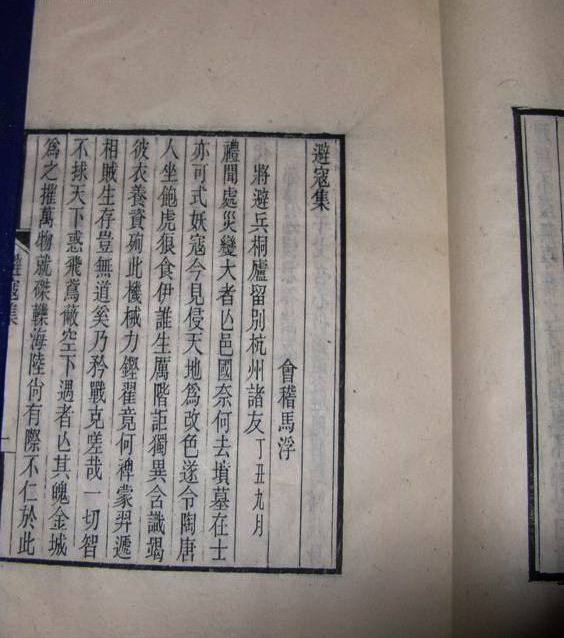 避寇集
會稽馬浮
將避兵桐廬留別杭州諸友丁丑九月
禮聞處災變大者亾邑國奈何去墳墓在士
亦可式妖寇今見侵天地爲改色遂令陶唐
人坐飽虎狼食伊誰生厲階詎獨異含識竭
彼衣養資殉此機械力鏗翟竟何裨蒙羿遞
相賊生存豈無道奚乃矜戰克嗟哉一切智
不捄天下惑飛鳶蔽空下遇者亾其魄金城
爲之摧萬物就磔轢海陸尚有際不仁於此
避寇集
一